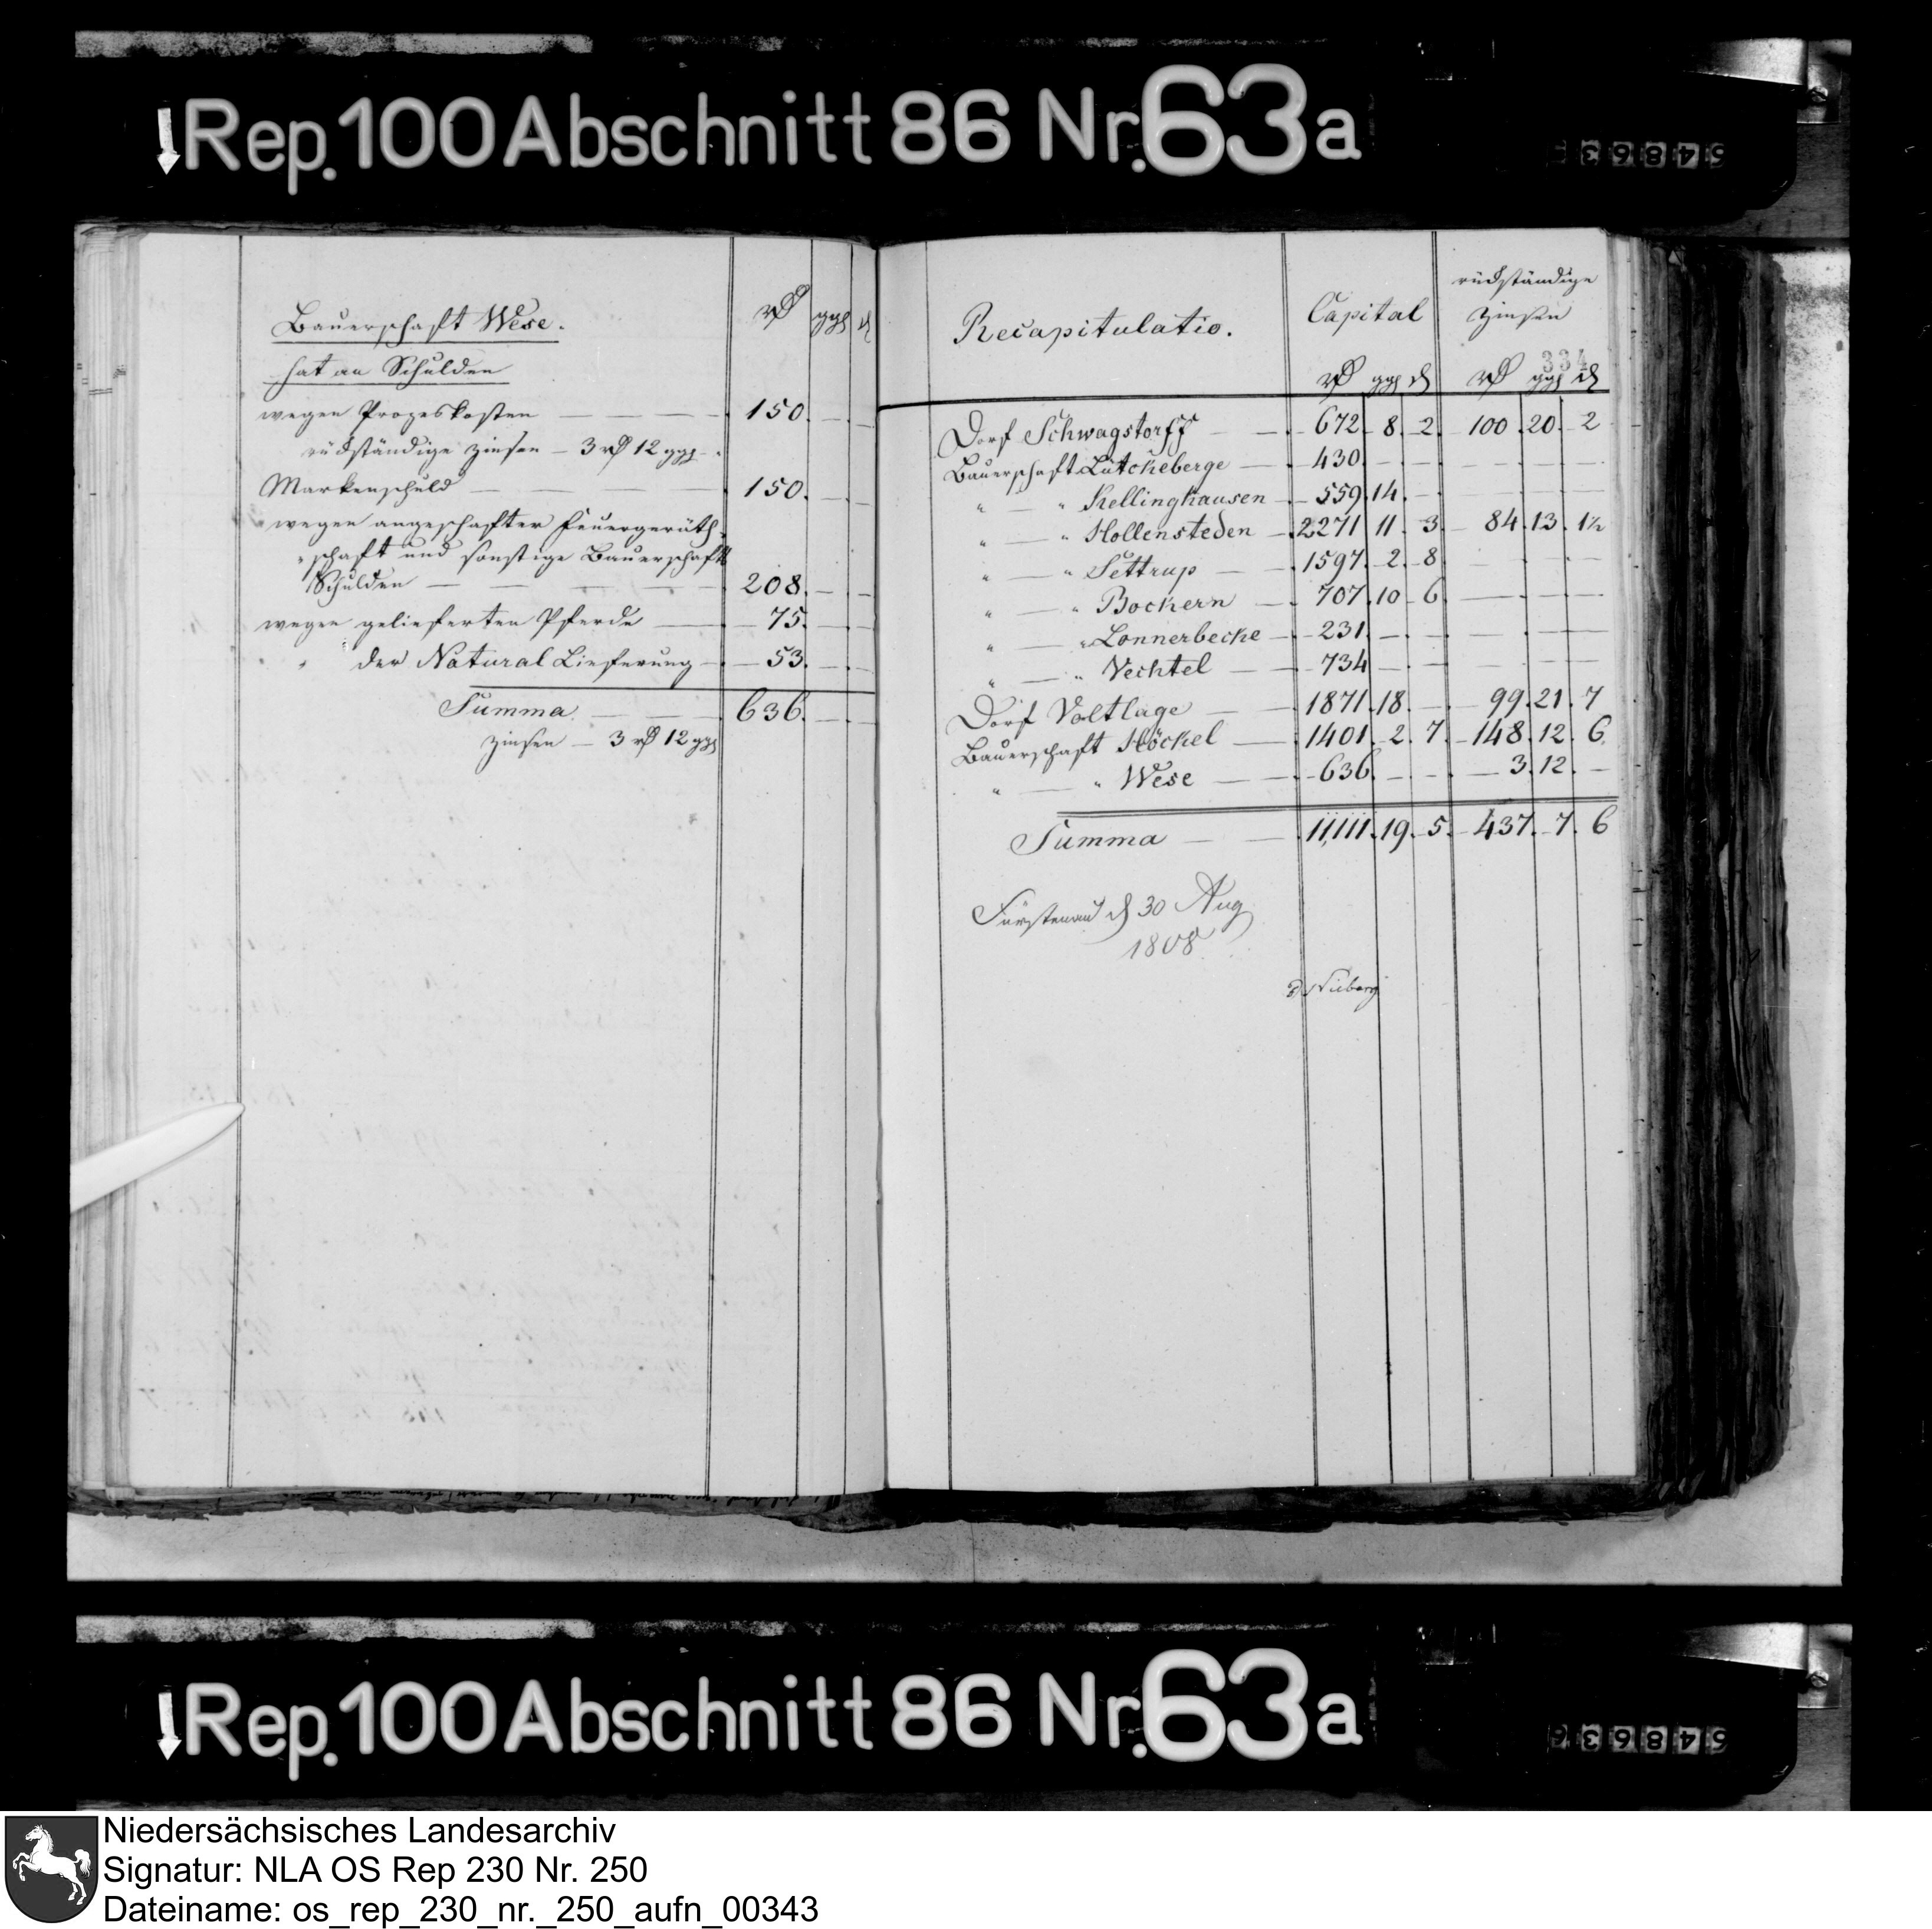 Rep. 100 Abschnitt 86 Nr. 63a
54863
Bauerschaft Wese. rß ggl ₰
hat an Schulden
wegen Prozeskosten — — — 150. — —
rückständige Zinsen — 3 rß 12 ggl
Markenschuld — — — 150. — —
wegen angeschafter Feuergeräth-
schaft und sonstige Bauerschafts
Schulden — — — 208. — —
wegen gelieferten Pferde — 75. — —
" der Natural Lieferung — 53. — —
Summa — — 636. — —
Zinsen — 3 rß 12 ggl
Recapitulatio. Capital rückständige
Zinsen
334
rß ggl ₰ rß ggl ₰
Dorf Schwagstorff — 672. 8. 2. 100. 20. 2
Bauerschaft Lütckeberge — 430. — — — — —
" — " Kellinghausen — 559. 14. — — — —
" — " Hollensteden — 2271 11. 3 — 84. 13. 1½
" — " Settrup — 1597. 2. 8 — — —
" — " Bockern — 707. 10. 6 — — —
" — " Lonnerbecke — 231. — — — — —
" — " Vechtel — 734 — — — — —
Dorf Voltlage — 1871. 18. — 99. 21. 7
Bauerschaft Höckel — 1401. 2. 7. 148. 12. 6.
" — " Wese — 636. — — 3. 12. —
Summa — 11,111. 19. 5. 437. 7. 6
Fürstenau ₰ 30 Aug
1808
Nieberg
Rep. 100 Abschnitt 86 Nr. 63a
548636
Niedersächsisches Landesarchiv
Signatur: NLA OS Rep 230 Nr. 250
Dateiname: os_rep_230_nr._250_aufn_00343